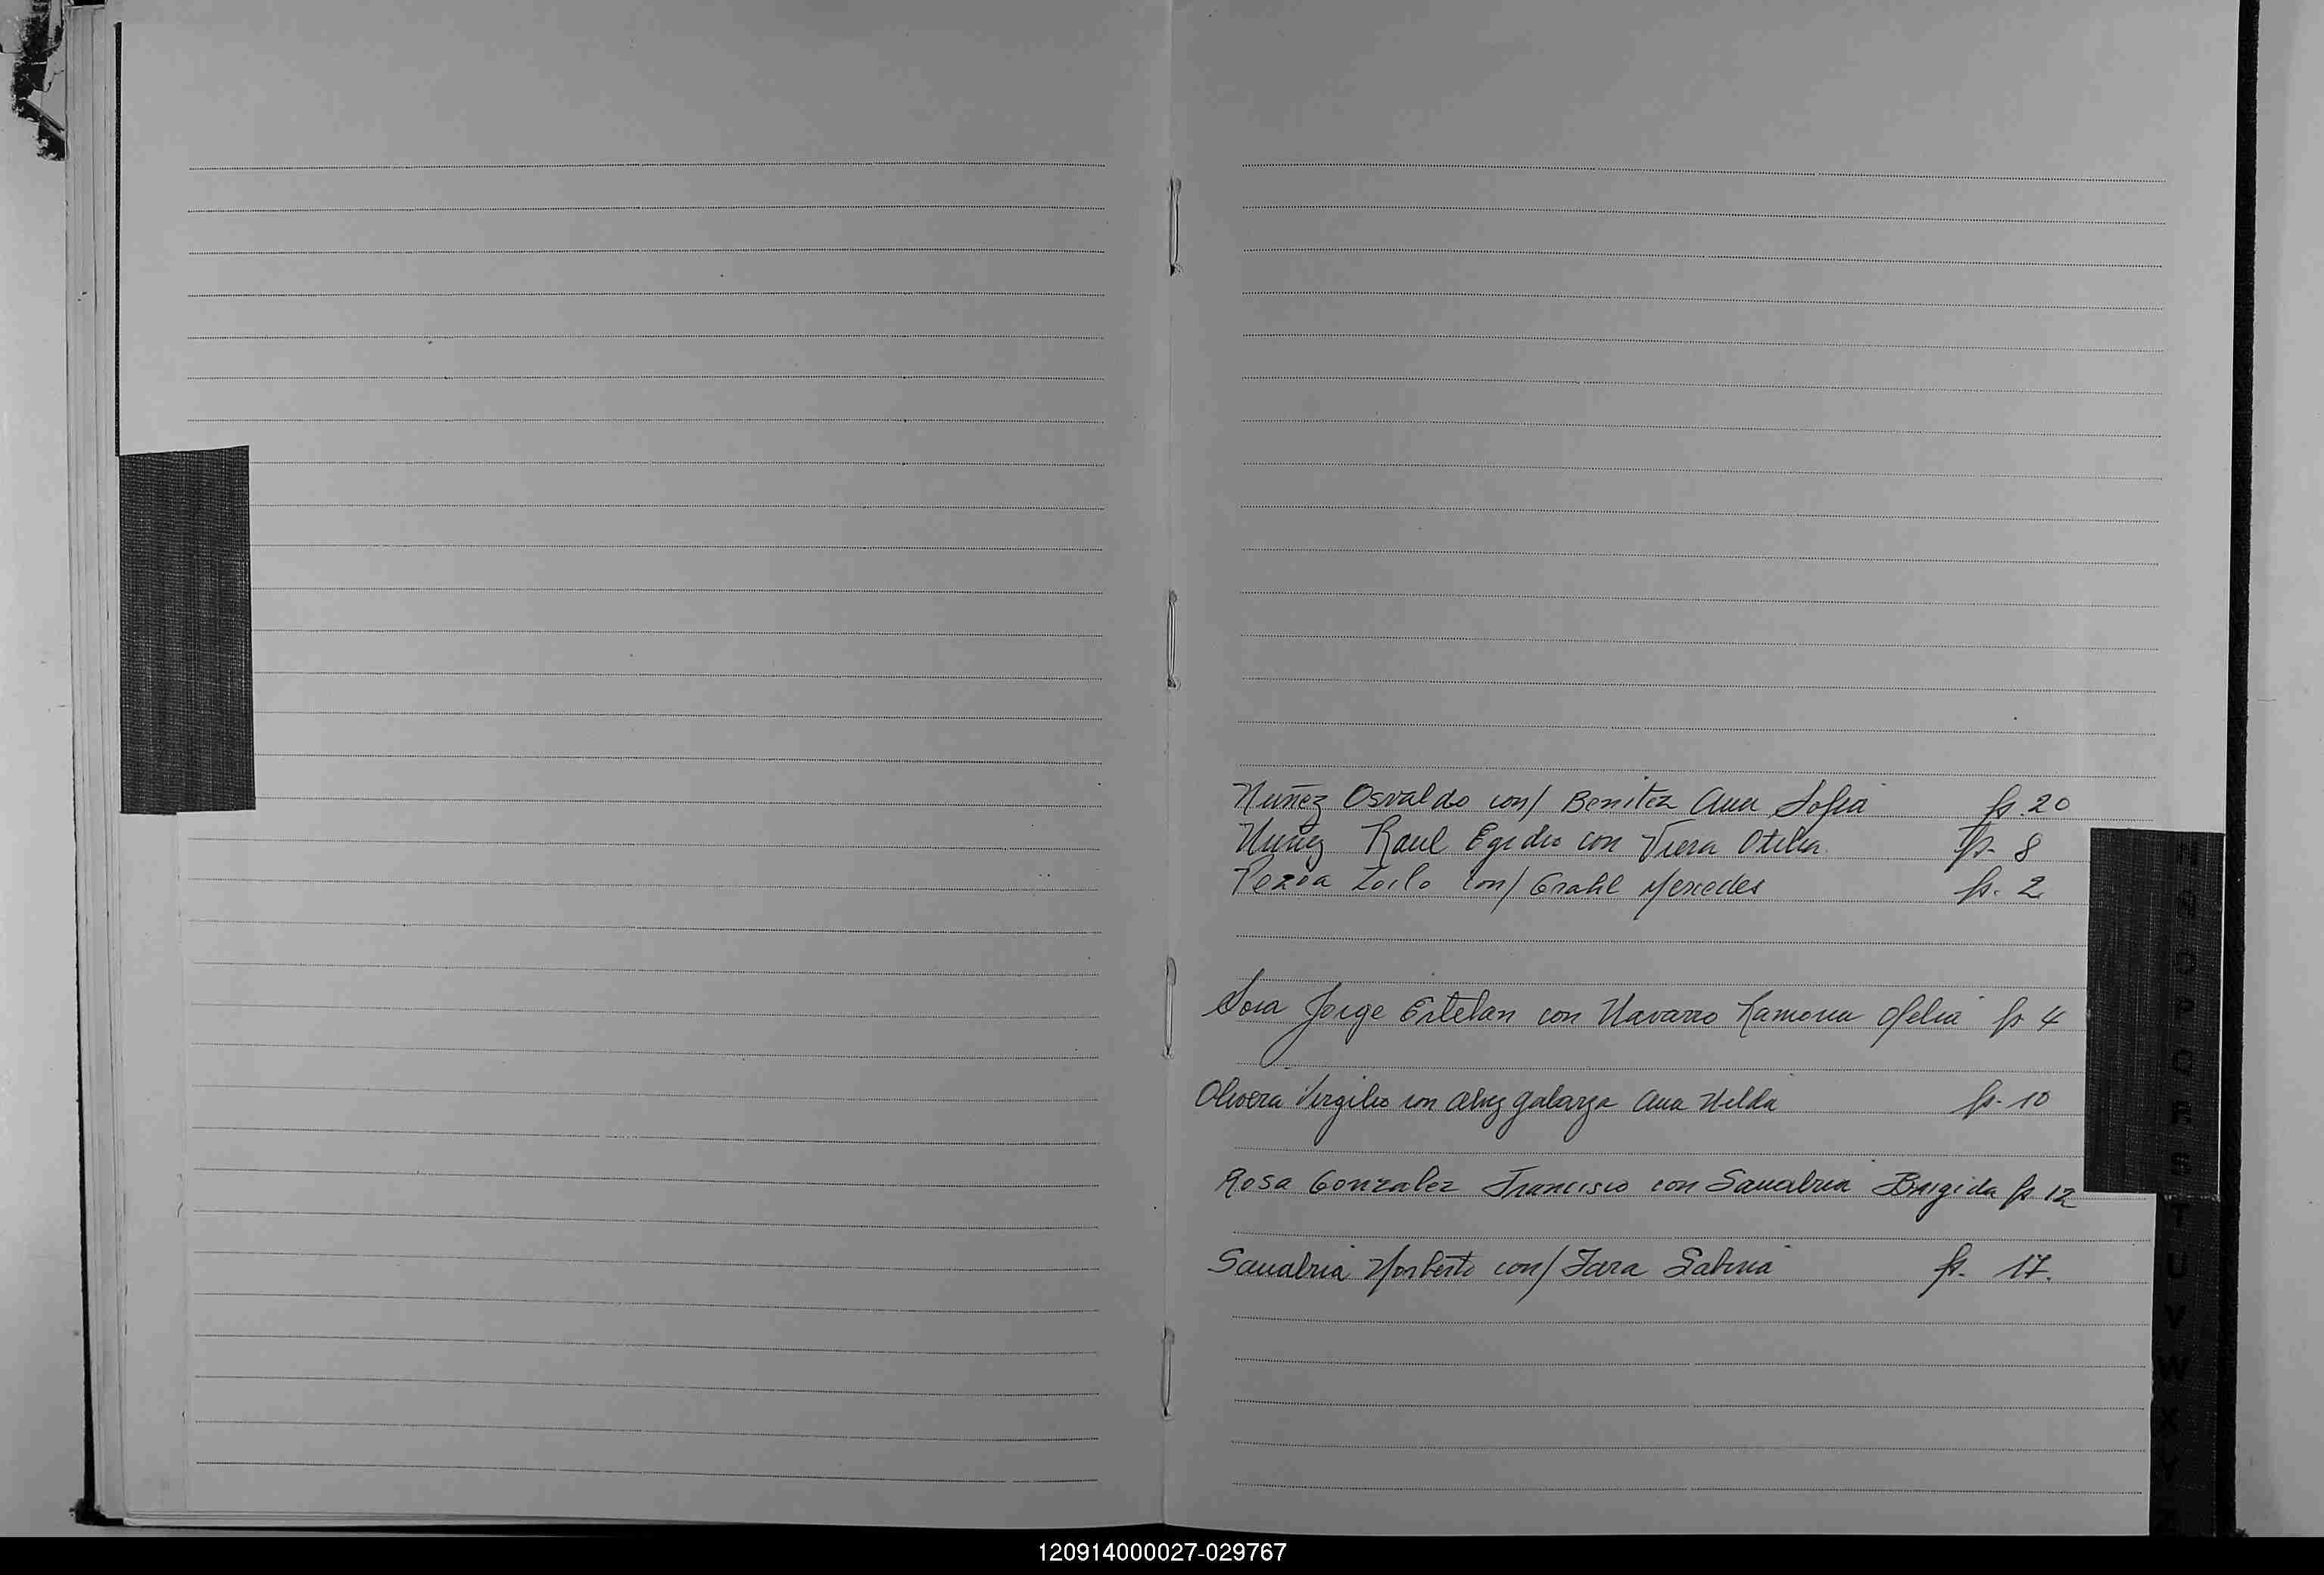 Nuñez Osvaldo con/ Benitez Ana Sofia fs. 20
Nuñez Raul Egidio con Viera Otilia fs. 8
Pozoa Zoilo con/ Grahl Mercedes fs. 2
Sosa Jorge Esteban con Navarro Ramona Ofelia fs 4
Olivera Virgilio con galarza Ana Nelda fs. 10
Rosa Gonzalez Francisco con Sanabria Brigida fs 12
Sanabria Norberto con/ Jara Sabina fs. 17.
N
O
P
Q
R
S
T
U
V
W
X
Y
Z
120914000027-029767